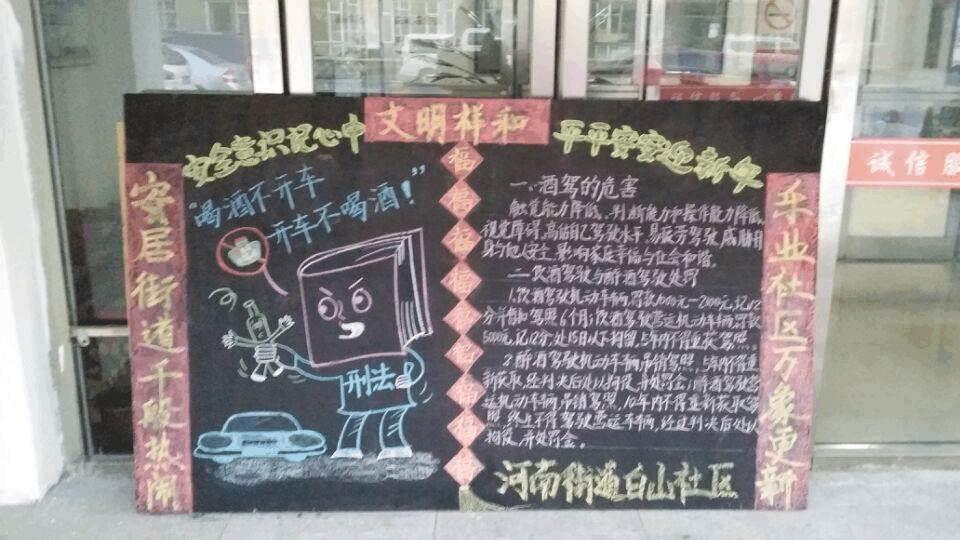 文明祥和
安全意识记心中
平平安安迎新年
安居街道千般热闹
乐业社区万象更新
“喝酒不开车
开车不喝酒!”
刑法
福
福
福
福
福
福
福
福
福
一、酒驾的危害
触觉能力降低、判断能力和操作能力降低,
视觉障碍,高估自己驾驶水平,易疲劳驾驶,威胁自
身与他人安全,影响家庭幸福与社会和谐。
二、饮酒驾驶与醉酒驾驶处罚
1.饮酒驾驶机动车辆,罚款1000元-2000元,记12
分并暂扣驾照6个月;饮酒驾驶营运机动车辆,罚款
5000元,记12分,处15日以下拘留,5年内不得重获驾照。
2.醉酒驾驶机动车辆,吊销驾照,5年内不得重
新获取,经判决后处以拘役,并处罚金;醉酒驾驶营
运机动车辆,吊销驾照,10年内不得重新获取驾
照,终生不得驾驶营运车辆,经过判决后处以
拘役,并处罚金。
河南街道白山社区
诚信服